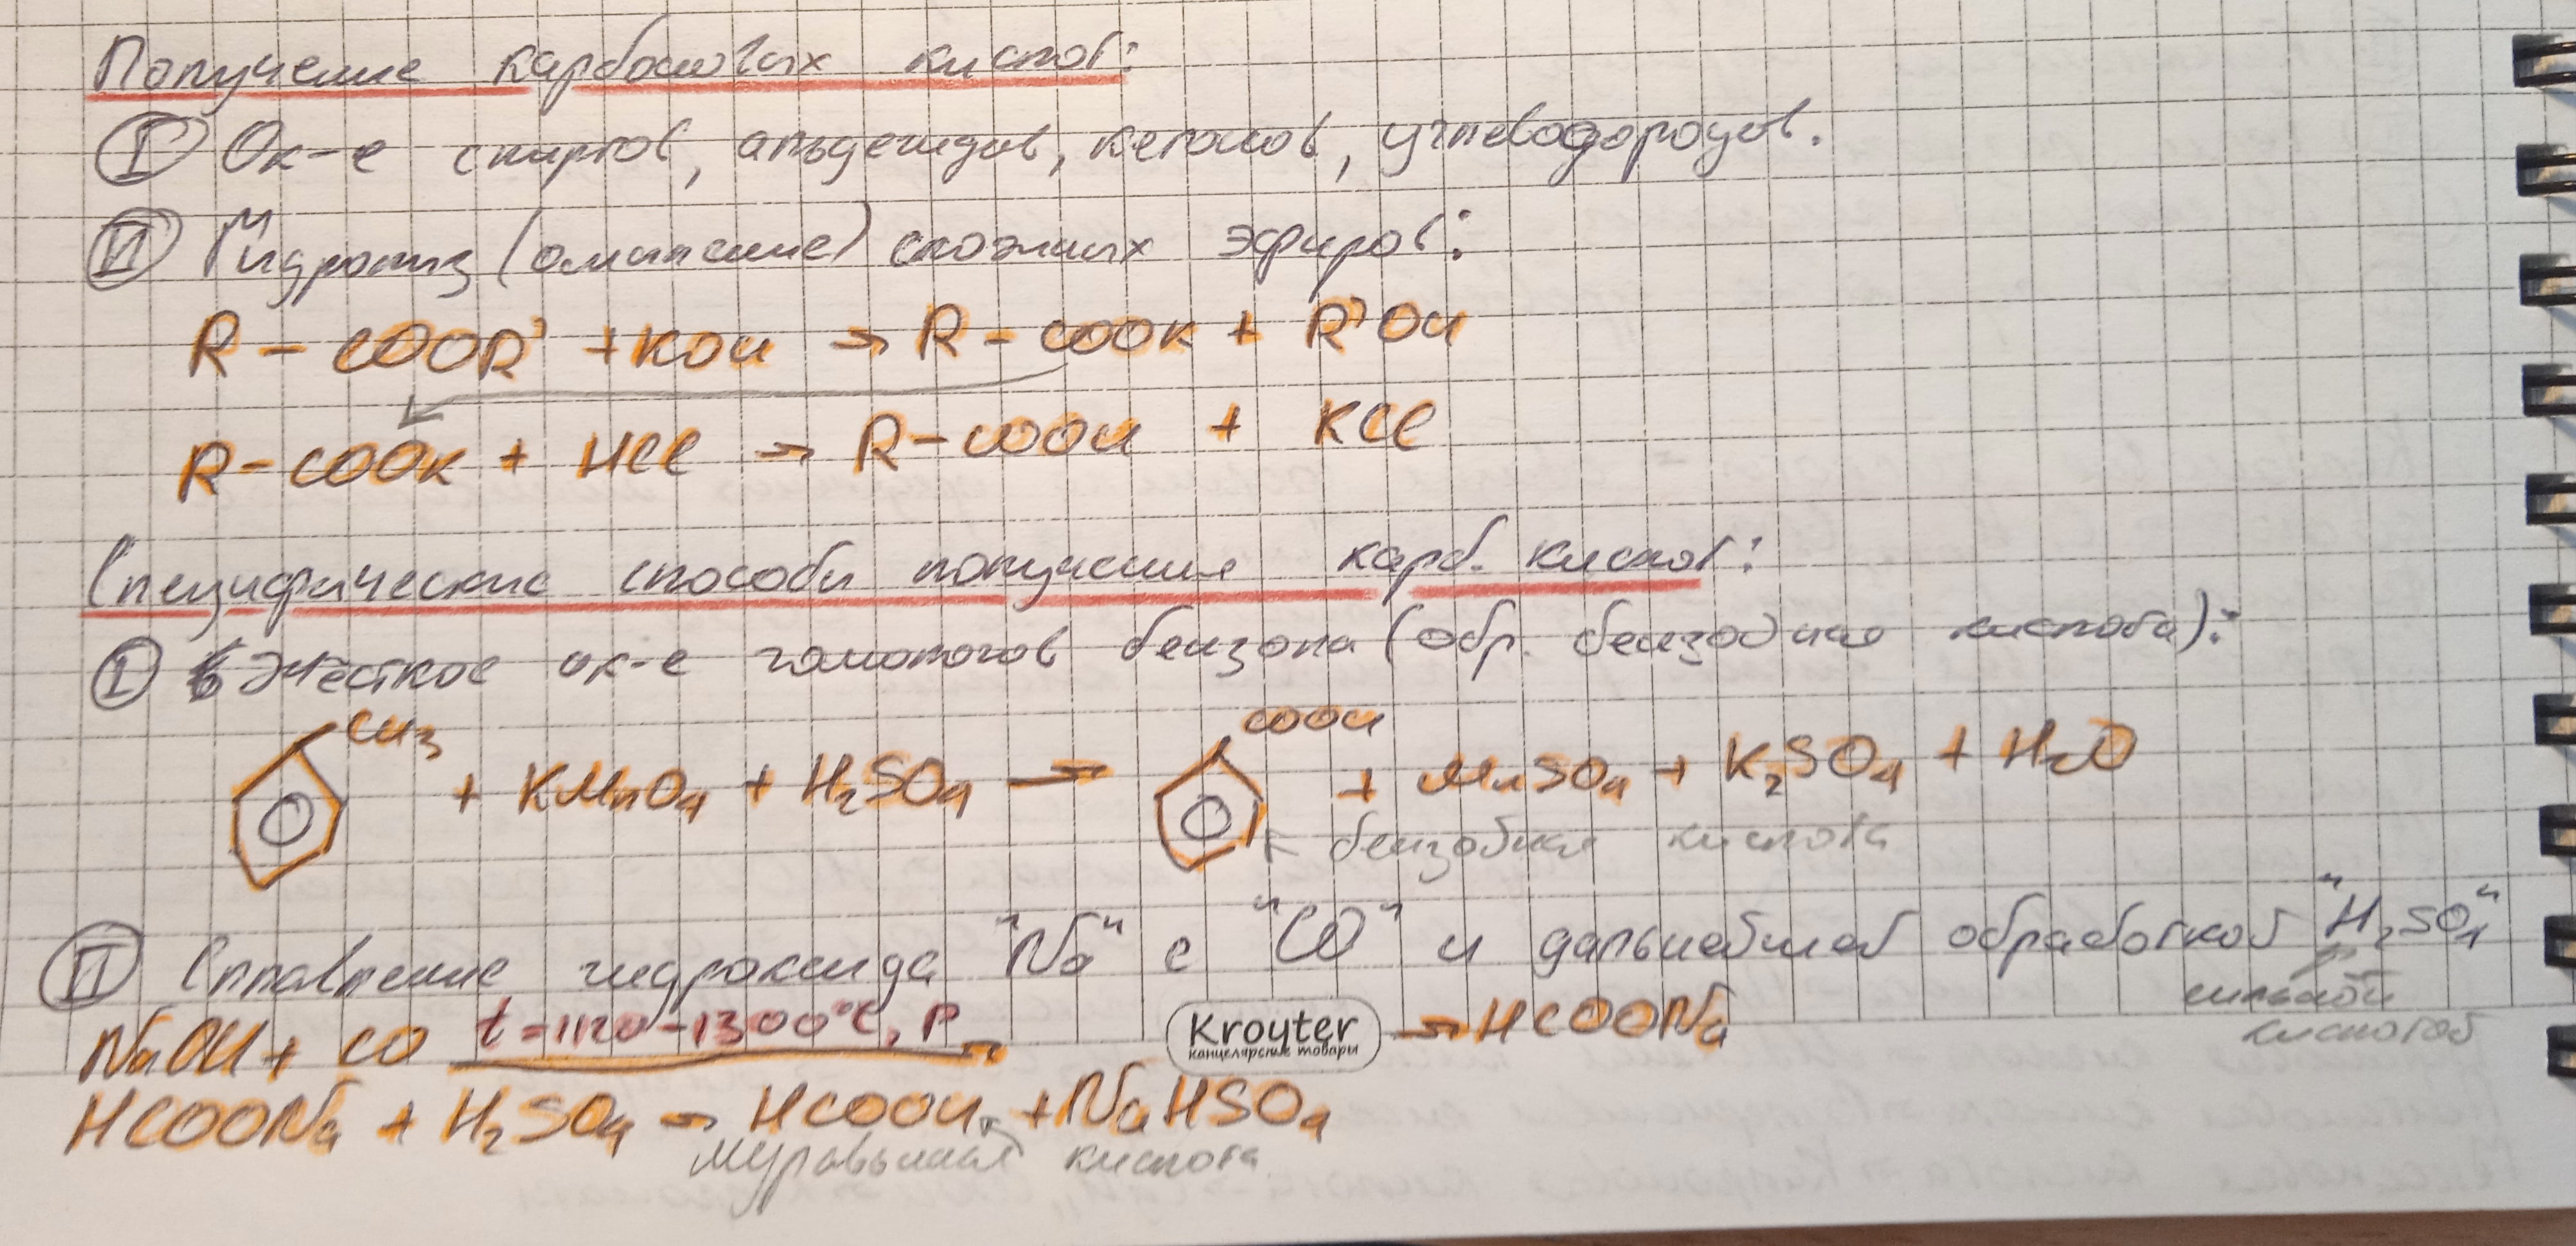 Получение карбоновых кислот:
I Ок-е спиртов, альдегидов, кетонов, углеводородов.
II Гидролиз (омыление) сложных эфиров:
R - COOR' + KOH → R - COOK + R'OH
R - COOK + HCl → R - COOH + KCl
Специфические способы получения карб. кислот:
I Жёсткое ок-е гомологов бензола (обр. бензойная кислота):
CH₃ COOH
+ KMnO₄ + H₂SO₄ → + MnSO₄ + K₂SO₄ + H₂O
бензойная кислота
II Сплавление гидроксида "Na" с "CO" и дальнейшей обработкой "H₂SO₄"
сильной
кислотой
NaOH + CO t=1120-1300°C, P → HCOONa
Kroyter
канцелярские товары
HCOONa + H₂SO₄ → HCOOH + NaHSO₄
муравьиная кислота